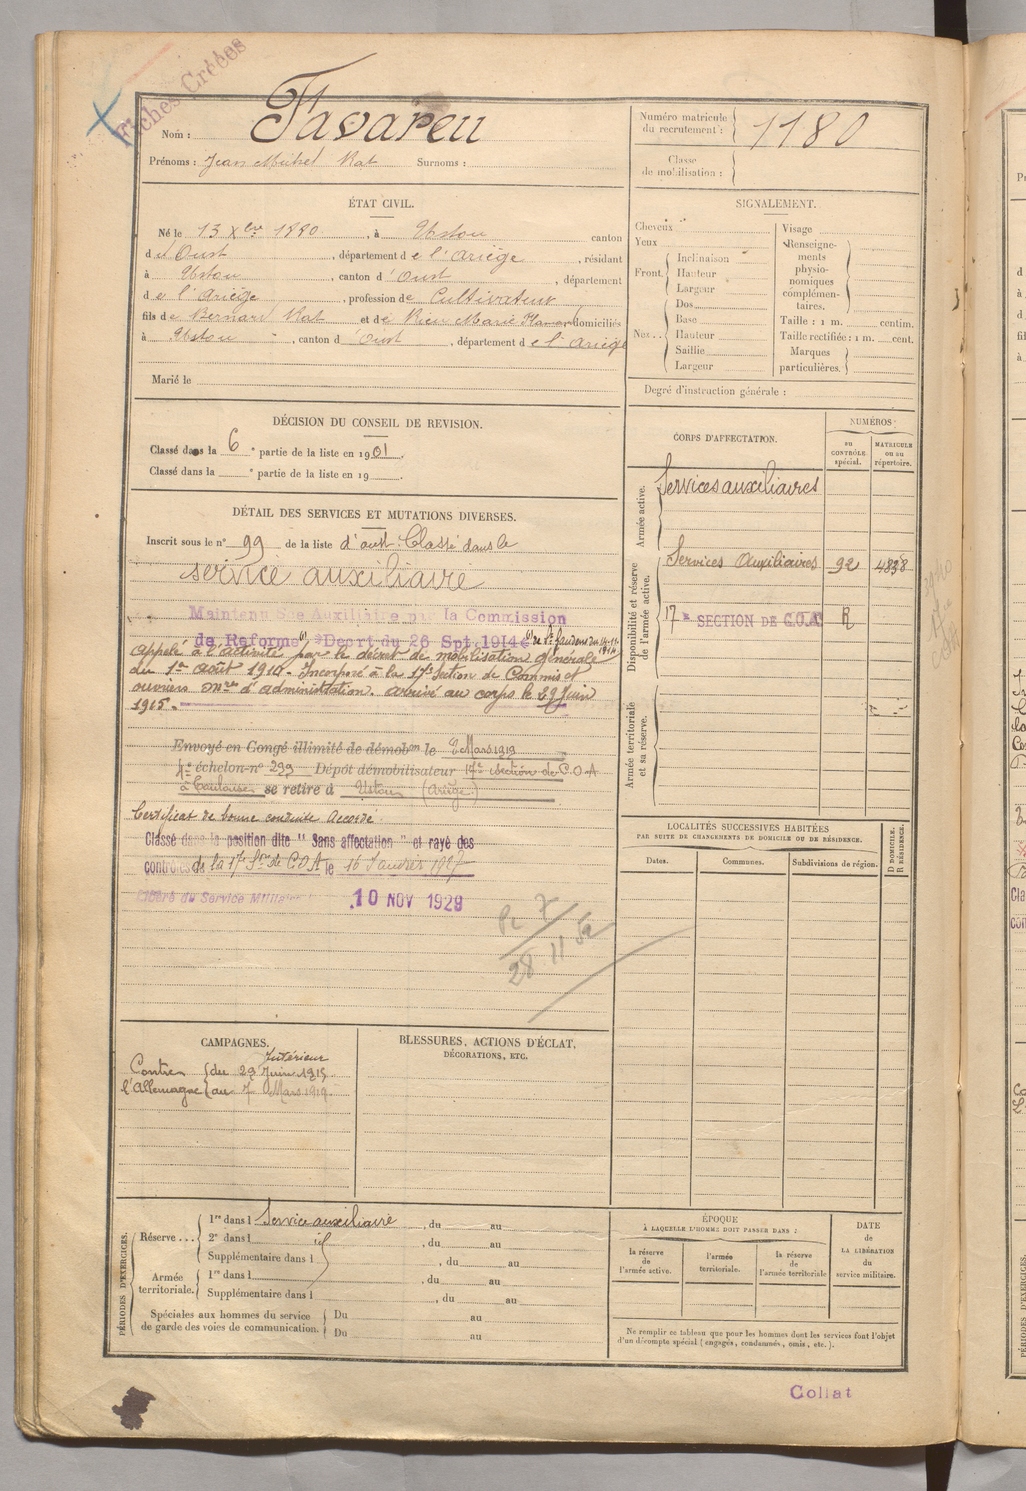 Fiches Créées
Nom : Favareu
Prénoms : Jean Michel Rat Surnoms :
Numéro matricule du recrutement : 1180
Classe de mobilisation :
ÉTAT CIVIL.
Né le 13 Xbre 1880, à Ustou canton
d'Oust, département de l'Ariège, résidant
à Ustou, canton d'Oust, département
de l'Ariège, profession de Cultivateur
fils de Bernard Rat et de Rieu Marie domiciliés
à Ustou, canton d'Oust, département de l'Ariège
Marié le
SIGNALEMENT.
Cheveux
Yeux
Front. Inclinaison
Hauteur
Largeur
Nez.. Dos
Base
Hauteur
Saillie
Largeur
Visage
Renseignements physionomiques complémentaires.
Taille : 1 m. centim.
Taille rectifiée : 1 m. cent.
Marques particulières.
Degré d'instruction générale :
DÉCISION DU CONSEIL DE REVISION.
Classé dans la 6e partie de la liste en 1901.
Classé dans la e partie de la liste en 19
DÉTAIL DES SERVICES ET MUTATIONS DIVERSES.
Inscrit sous le n° 99 de la liste d'oust. Classé dans le
service auxiliaire
Maintenu Sce Auxiliaire par la Commission
de Reforme Decrt du 26 Spt 1914
Appelé à l'activité par le décret de mobilisation générale
du 1er août 1914. Incorporé à la 17e Section de Commis et
ouvriers mres d'administration. arrivé au corps le 29 Juin
1915.
Envoyé en Congé illimité de démobon le 8 Mars 1919
4e échelon n° 299 Dépôt démobilisateur 17e section de C.O.A
à Toulouse se retire à Ustou (Ariège)
Certificat de bonne conduite Accordé.
Classé dans la position dite "Sans affectation" et rayé des
contrôles de la 17e Son de COA le 16 Janvier 1927
Libéré du Service Militaire 10 NOV 1929
28 11
CORPS D'AFFECTATION.
NUMÉROS
au CONTRÔLE spécial.
MATRICULE ou au répertoire.
Armée active.
Services auxiliaires
Disponibilité et réserve de l'armée active.
Services Auxiliaires 92 4838
17e SECTION DE C.O.A R
Armée territoriale et sa réserve.
LOCALITÉS SUCCESSIVES HABITÉES
PAR SUITE DE CHANGEMENTS DE DOMICILE OU DE RÉSIDENCE.
Dates. Communes. Subdivisions de région.
D DOMICILE. R RÉSIDENCE.
CAMPAGNES.
Intérieur
Contre du 29 Juin 1915
l'Allemagne au 7 Mars 1919
BLESSURES, ACTIONS D'ÉCLAT,
DÉCORATIONS, ETC.
PÉRIODES D'EXERCICES.
Réserve... 1re dans l Service auxiliaire, du au
2e dans l id, du au
Supplémentaire dans l, du au
Armée territoriale. 1re dans l, du au
Supplémentaire dans l, du au
Spéciales aux hommes du service
de garde des voies de communication. Du au
Du au
ÉPOQUE
À LAQUELLE L'HOMME DOIT PASSER DANS :
la réserve de l'armée active.
l'armée territoriale.
la réserve de l'armée territoriale
DATE de LA LIBÉRATION du service militaire.
Ne remplir ce tableau que pour les hommes dont les services font l'objet
d'un décompte spécial (engagés, condamnés, omis, etc.).
Collat